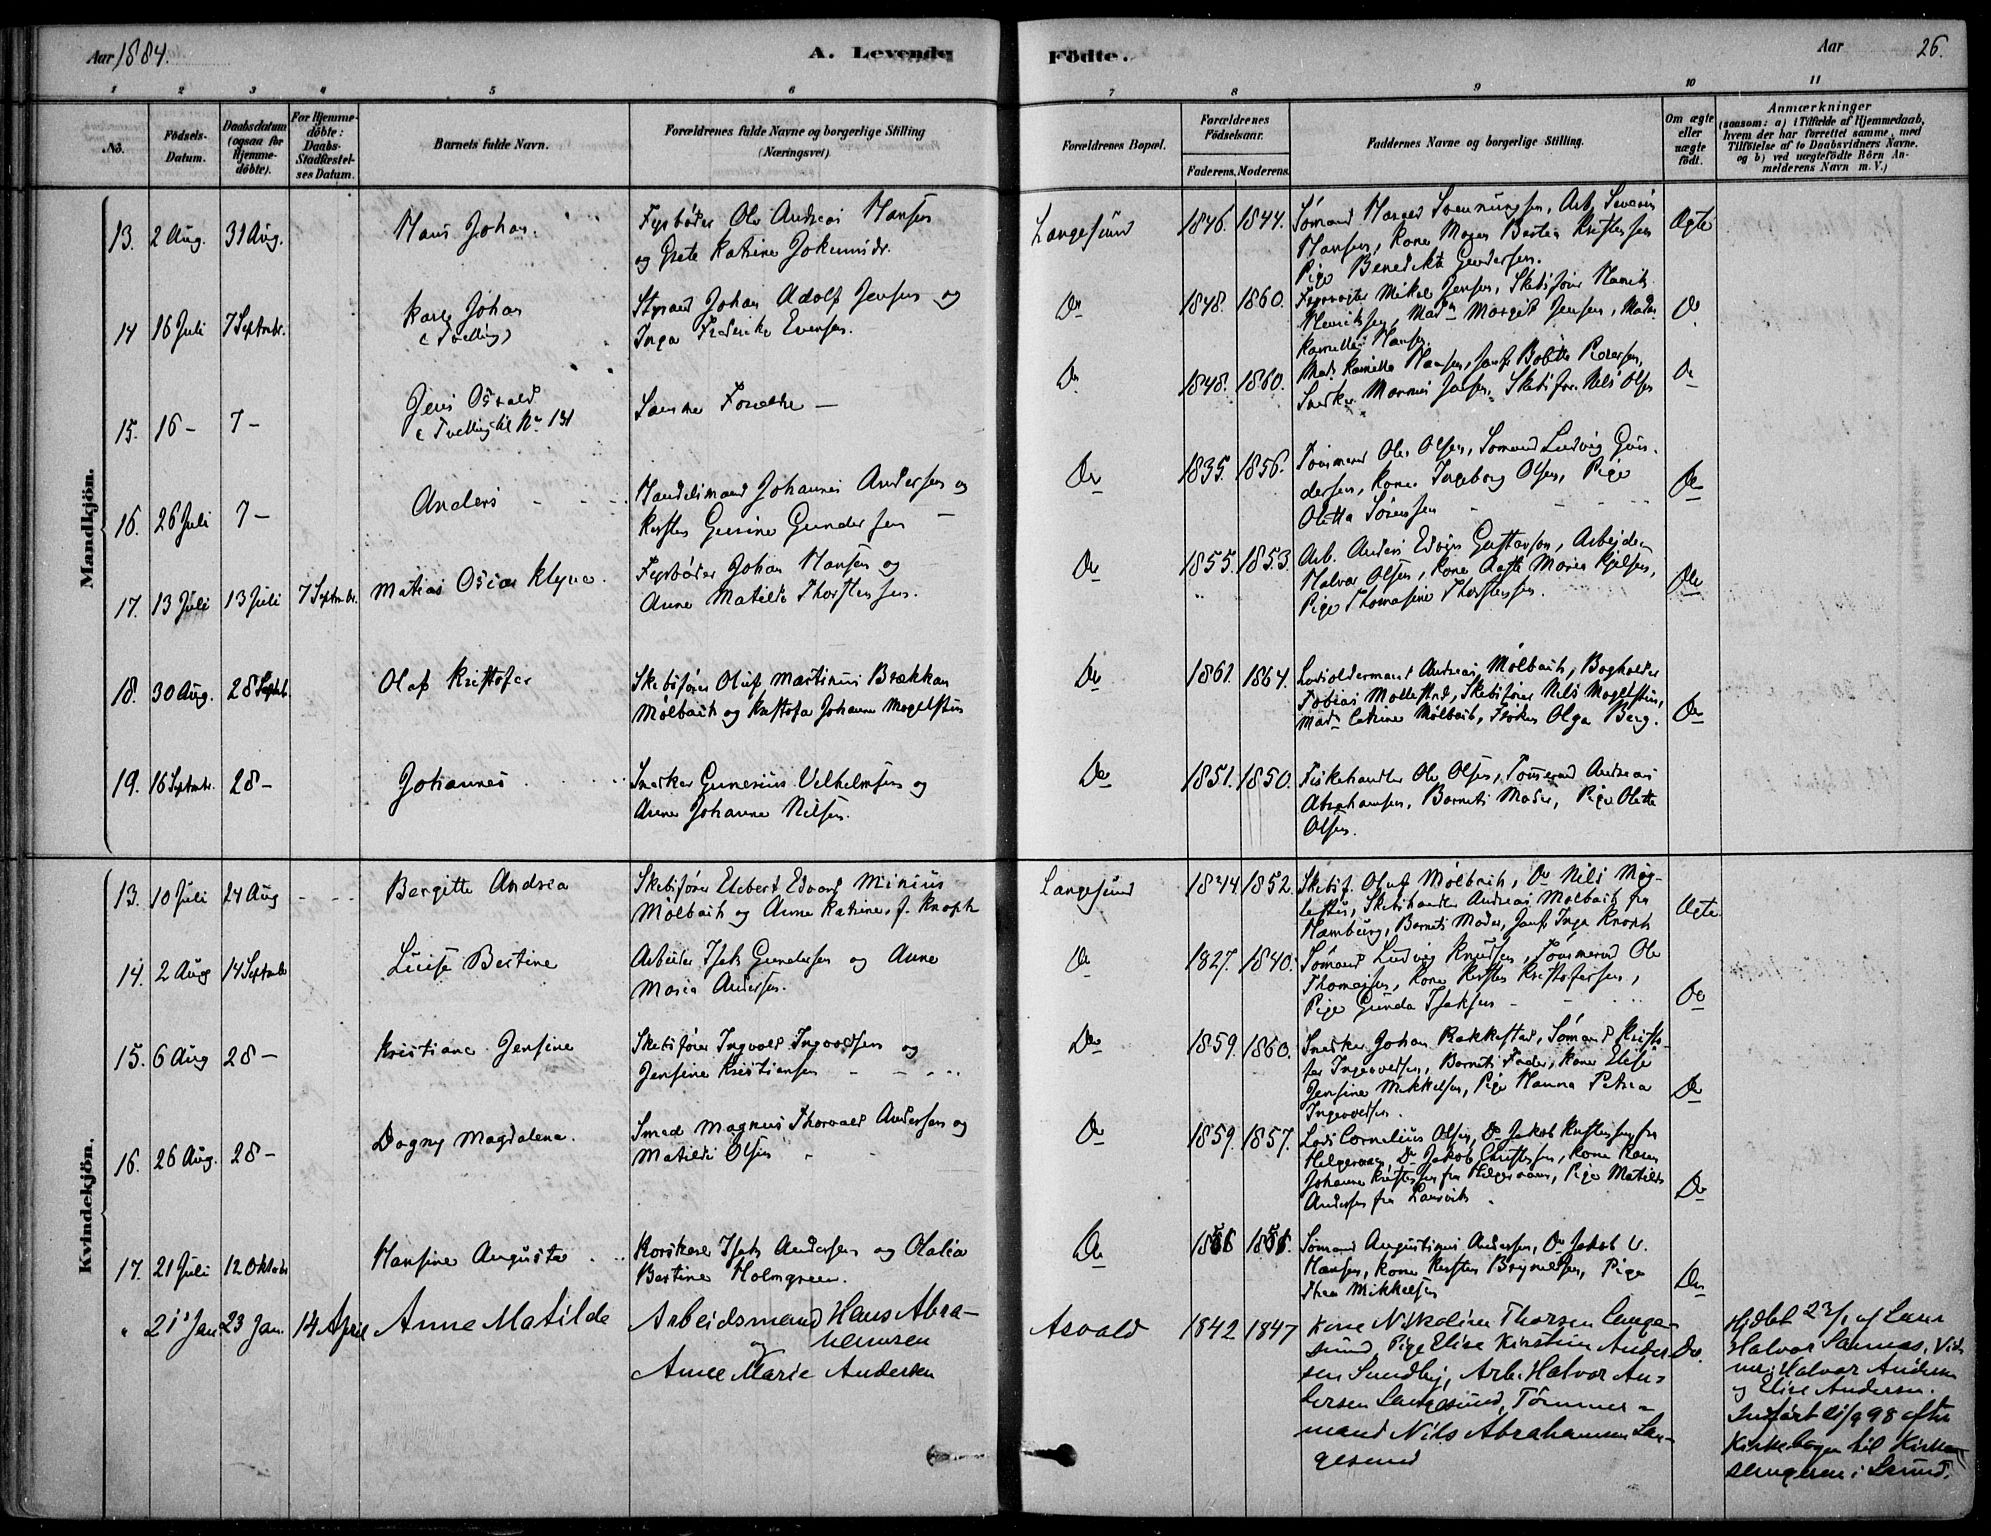 Aar 1884.
A. Levende
Födte.
Aar
26.
1 2 3 4 5 6 7 8 9 10 11
No.
Födsels-
Datum.
Daabsdatum
(ogsaa for
Hjemme-
döbte).
For Hjemme-
döbte:
Daabs-
Stadfæstel-
ses Datum.
Barnets fulde Navn.
Forældrenes fulde Navne og borgerlige Stilling
(Næringsvei).
Forældrenes Bopæl.
Forældrenes
Födselsaar.
Faderens. Moderens.
Faddernes Navne og borgerlige Stilling.
Om ægte
eller
uægte
födt.
Anmærkninger
(saasom: a) i Tilfælde af Hjemmedaab,
hvem der har forrettet samme, med
Tilföielse af to Daabsvidners Navne.
og b) ved uægtefödte Börn An-
melderens Navn m.V.)
Mandkjön.
13. 2 Aug. 31 Aug.
Hans Johan.
Fyrbøder Ole Andreas Hansen
og Grete Katrine Jokumsdr.
Langesund
1846. 1844.
Hansen, Kone Maren Bertea Kristensen
Pige Benedikte Gundersen.
Ægte
14 16 Juli 7 Septmbr.
Karl Johan
(Tvelling)
Styrmd Johan Adolf Jensen og
Inga Frederike Evensen.
Do
1848. 1860.
Mikal Jensen, Skibsfører Henrik
Henriksen, Madm Margit Jensen, Madm
Kamilla Hansen.
Do
15. 16 - 7 -
Jens Osvald
(Tvelling til No 131
Samme Forældre -
Do
1848. 1860.
Mad. Kamilla Hansen, Jomf. Bolette Pedersen,
Snedker Marinius Jensen, Skibsfør. Nils Olsen
Do
16. 26 Juli 7 -
Anders
Handelsmand Johannes Andersen og
Kirsten Gurine Gundersen -
Do
1835. 1856.
Tømmermd Ole Olsen, Sømand Ludvig Gun-
dersen, Kone Ingeborg Olsen, Pige
Oletta Sørensen
Do
17. 13 Juli 13 Juli 7 Septmbr.
Matias Oscar Klyve.
Fyrbøder Johan Hansen og
Anne Matilde Thorstensen.
Do
1855. 1853.
Arb. Anders Edvin Gustavson, Arbejder
Halvor Olsen, Kone Aagte Maria Kjelsen,
Pige Thomasine Thorstensen.
Do
18. 30 Aug. 28 Septb.
Olaf Kristofer
Skibsfører Oluf Martinus Brækkan
Mølbach og Kristofa Johanne Mogelstue
Do
1861. 1864.
Lodsoldermand Andreas Mølbach, Bogholder
Tobias Mollestad, Skibsfører Nils Mogelstue,
Madm Catrine Mølbach, Frøken Olga Berg.
Do
19. 16 Septmbr. 28 -
Johannes
Snedker Gunerius Vilhelmsen og
Anne Johanne Nilsen.
Do
1851. 1850.
Fiskehandler Ole Olsen, Tømmermd Andreas
Abrahamsen, Barnets Moder, Pige Olette
Olsen.
Kvindekjön.
13. 10 Juli 24 Aug
Bergitte Andrea
Skibsfører Elebert Edvard Minius
Mølbach og Anne Katrine, f. Knoph
Langesund
1844. 1852.
Skibsf. Oluf Mølbach, Do Nils Mog-
elstue, Skibshandler Andreas Mølbach fra
Hamburg, Barnets Moder, Jomf. Inga Knoph
Ægte
14. 2 Aug 14 Septmbr
Luise Bertine
Arbeider Isak Gundersen og Anne
Maria Andersen.
Do
1827. 1840.
Sømand Ludvig Knudsen, Tømmermd Ole
Thomassen, Kone Kirsten Kristofersen,
Pige Gunda Isaksen -
Do
15. 6 Aug 28 -
Kristiane Jensine
Skibsfører Ingvald Ingvoldsen og
Jensine Kristiansen
Do
1859. 1860.
Snedker Johan Rakkestad, Sømand Kristo-
fer Ingevoldsen, Barnets Fader, Kone Elise
Jensine Mikkelsen, Pige Hanna Petrea
Ingevoldsen.
Do
16. 26 Aug. 28 -
Dagny Magdalena.
Smed Magnus Thorvald Andersen og
Matilde Olsen
Do
1859. 1857.
Lods Cornelius Olsen, Do Jakob Kristensen fra
Helgeroaen, Do Jakob Christensen, Kone Karen
Johanne Kristensen fra Helgeroaen, Pige Matilde
Andersen fra Laurvik.
Do
17. 21 Juli 12 Oktobr
Hansine Augusta
Isak Andersen og Olalia
Bertine Holmgreen.
Do
Sømand Augustinus Andersen, Do Jakob U.
Hansen, Kone Kirsten Brynildsen, Pige
Thea Mikkelsen
Do
" 21 Jan. 23 Jan. 14 April
Anne Matilde
Arbeidsmand Hans Abra-
hamsen
og
Anne Marie Andersen
Asvald
1842 1847
Kone Nikoline Thorsen Lange-
sund, Pige Elise Kirstine Ander-
sen Sundby, Arb. Halvor An-
dersen Langesund, Tømmer-
mand Nils Abrahamsen Lan-
gesund
Do.
Hjdbt 23/1 af Lærer
Halvor Sannæs. Vid-
ner: Halvor Andersen
og Elise Andersen.
Indført 21/9 98 efter
Kirkebogen til Kirke-
sangeren i Lsund.